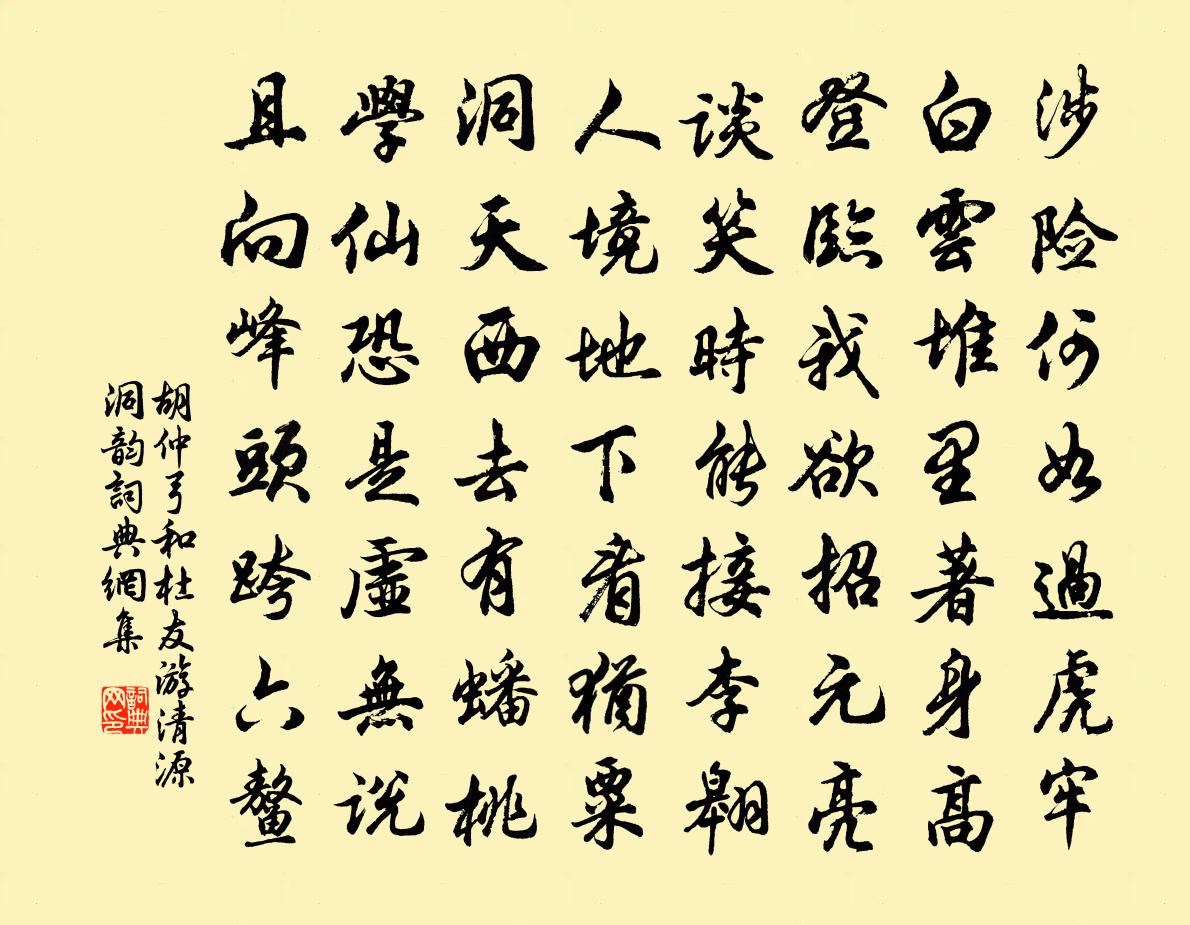 涉险何如過虎牢
白雲堆里著身高
登臨我欲招元亮
谈笑時能接李翱
人境地下看猶粟
洞天西去有蟠桃
學仙恐是虛無说
且向峰頭跨六鰲
胡仲弓和杜友游清源
洞韵詞典網集
詞典网印